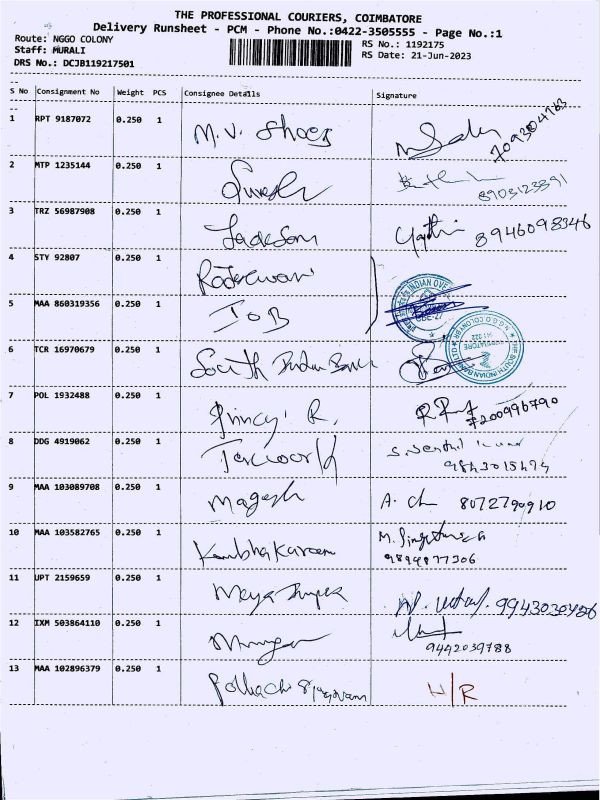 THE PROFESSIONAL COURIERS, COIMBATORE
Delivery Runsheet - PCM - Phone No.:0422-3505555 - Page No.:1
Route: NGGO COLONY
Staff: MURALI
DRS No.: DCJB119217501
RS No.: 1192175
RS Date: 21-Jun-2023
S No Consignment No Weight PCS Consignee Details Signature
1 RPT 9187072 0.250 1 M.V. Shoes
2 MTP 1235144 0.250 1 Suresh
8903123391
3 TRZ 56987908 0.250 1 8946098346
4 STY 92807 0.250 1
5 MAA 860319356 0.250 1 IOB
6 TCR 16970679 0.250 1 South Indian Bank
7 POL 1932488 0.250 1 R.
7200996790
8 DDG 4919062 0.250 1
9843015494
9 MAA 103089708 0.250 1 Magesh A. 8072790910
10 MAA 103582765 0.250 1 M.
9894877306
11 UPT 2159659 0.250 1 9943030456
12 IXM 503864110 0.250 1 Murugan
9442039788
13 MAA 102896379 0.250 1 Pollachi H/R